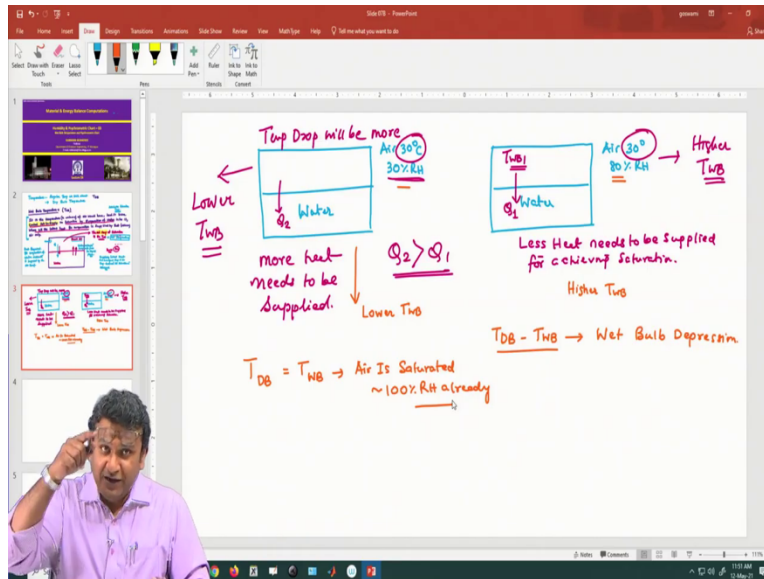 Slide 078 - PowerPoint
goswami
File Home Insert Draw Design Transitions Animations Slide Show Review View MathType Help Tell me what you want to do
Select Draw with Touch Eraser Lasso Select
Add Pen Ruler Ink to Shape Ink to Math
Tools Pens Stencils Convert
1
Material & Energy Balance Computations
2
3
4
5
Temp Drop will be more
Air 30°C
30% RH
Lower
TWB
Water
Q2
more heat
needs to be
Supplied.
Q2 > Q1
Lower TWB
Air 30°
80% RH
Higher
TWB
TWB1
Water
Q1
Less Heat needs to be Supplied
for achieving Saturation.
Higher TWB
TDB - TWB → Wet Bulb Depression
TDB = TWB → Air Is Saturated
~100% RH already
Notes Comments
111%
11:51 AM
12-May-21